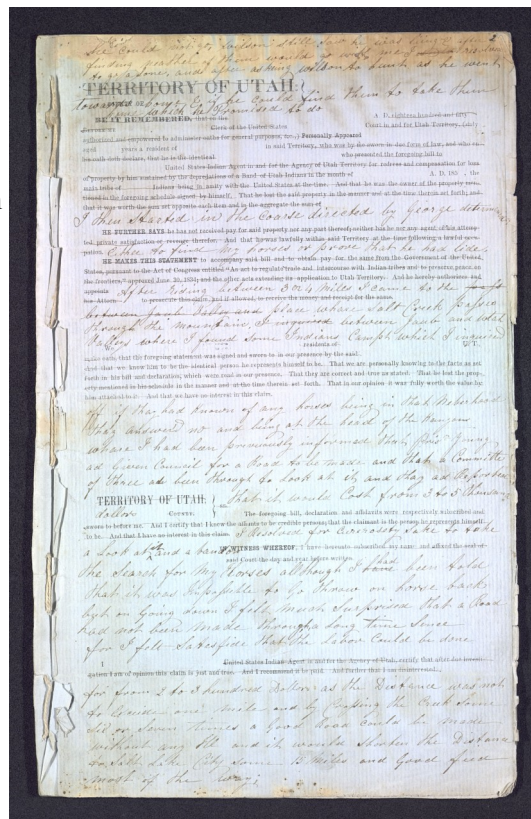 2
finding neather of them would go with me
to go alone, and after asking wilson to such as he went
TERRITORY OF UTAH,
toward to if he could find them to take them
which he promised to do
BE IT REMEMBERED, that on the A. D. eighteen hundred and fifty
Clerk of the United States Court in and for Utah Territory, (duly
authorized and empowered to administer oaths for general purposes, &c.,) Personally Appeared
aged years a resident of in said Territory, who was by me sworn in due form of law, and who on
his oath doth declare, that he is the identical who presented the foregoing bill to
United States Indian Agent in and for the Agency of Utah Territory for redress and compensation for loss
of property by him sustained by the depredations of a Band of Utah Indians in the month of A. D. 185 , the
said tribe of Indians being in amity with the United States at the time. And that he was the owner of the property
named in the foregoing schedule signed by himself. That he lost the said property in the manner and at the time therein set forth, and
that it was worth the sum set opposite each item and in the aggregate the sum of
I then Started in the Coarse directed by George
HE FURTHER SAYS he has not received pay for said property nor any part thereof; neither has he nor any agent of his attempted
private satisfaction or revenge therefor. And that he was lawfully within said Territory at the time following a lawful
Ether to find My horses or prove that he had Lide,
HE MAKES THIS STATEMENT to accompany said bill and to obtain pay for the same from the Government of the United
States, pursuant to the Act of Congress entitled "An act to regulate trade and intercourse with Indian tribes and to preserve peace on
the frontiers," approved June 30, 1834; and the other acts extending its application to Utah Territory. And he hereby authorizes and
appoints After Riding between 3 or 4 Miles I came to the
to prosecute this claim, and if allowed, to receive the money and receipt for the same.
between Juab Valley and place whare Salt Creek passes
through the mountain, I inquired between Juab and
Valleys where I found some Indians Campt which I inquired
residents of U.T.
make oath, that the foregoing statement was signed and sworn to in our presence by the said
and that we know him to be the identical person he represents himself to be. That we are personally knowing to the facts as set
forth in his bill and declaration, which were read in our presence. That they are correct and true as stated. That he lost the property
mentioned in his schedule in the manner and at the time therein set forth. That in our opinion it was fully worth the value by
him attached to it. And that we have no interest in this claim.
if thay had known of any horses being in that
thay answered no and being at the head of the
whare I had been previously informed that Young
ad Given Council for a Road to be made and that a Committe
of Three ad been through to look at it, and thay ad Reported
TERRITORY OF UTAH, that it would Cost from 3 to 5 thousand
dollars COUNTY. The foregoing bill, declaration and affidavits were respectively subscribed and
sworn to before me. And I certify that I know the affiants to be credible persons; that the claimant is the person he represents himself
to be. And that I have no interest in this claim. I Resolved for Curiosety Sake to take
a look at it and abandon IN WITNESS WHEREOF, I have hereunto subscribed my name and affixed the seal of
said Court the day and year before written.
the Search for My Horses although I had been told
that it was Impossible to Go throw on horse back
but on Going down I felt Much Surprised that a Road
had not been made through a long time since
for I felt Satesfide that the labor Could be done
I United States Indian Agent in and for the Agency of Utah, certify that after due investigation
I am of opinion this claim is just and true. And I recommend it be paid. And further that I am disinterested.
for from 2 to 3 hundred Dollers as the Distance was not
to Exside one mile and by Crossing the Creek Some
Six or Seven times a Good Road could be made
without any and it would Shorten the Distance
to Salt Lake City Some 15 Miles and Good feed
most of the way;